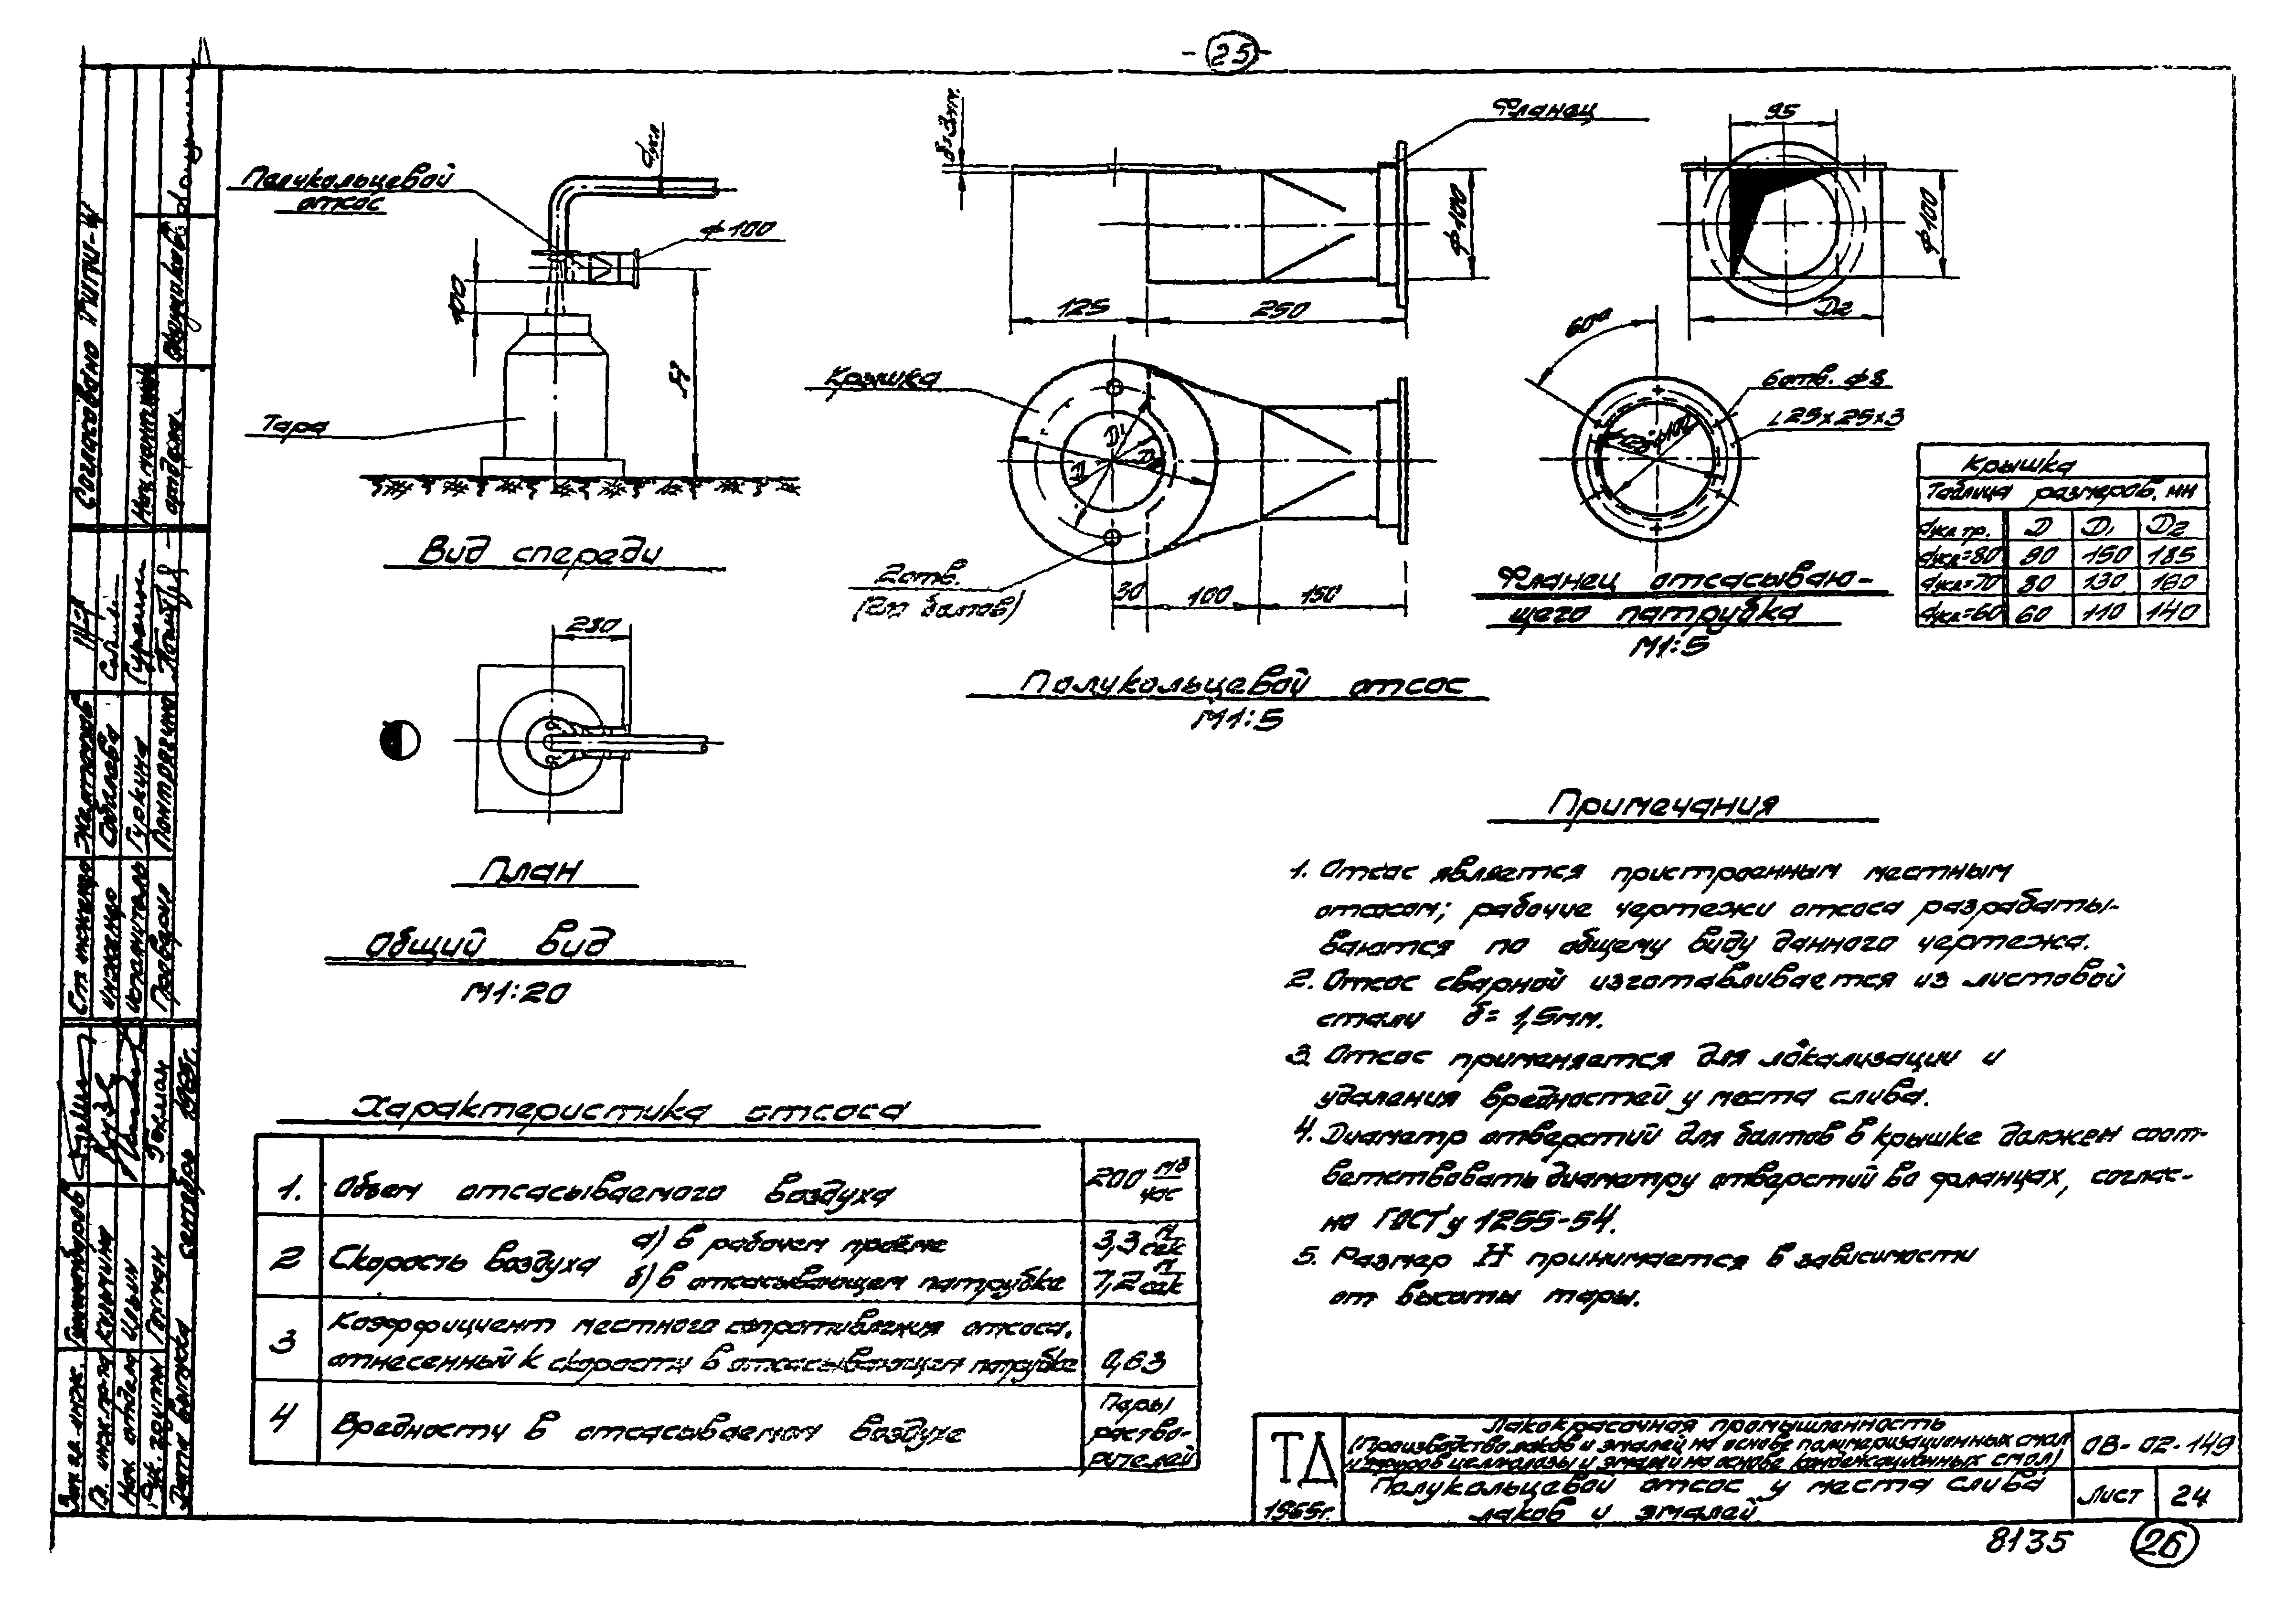 - 25 -
Полукольцевой
отсос
dукл
ф100
100
H
Тара
Вид спереди
280
План
Общий вид
М1:20
δ=3мм.
Фланец
ф100
125
250
Крышка
D1
D
D2
2отв.
(для болтов)
30
100
150
Полукольцевой отсос
М1:5
95
ф100
D2
60°
6отв. ф8
∟25x25x3
Фланец отсасываю-
щего патрубка
М1:5
Крышка
Таблица размеров, мм
dукл тр. D D1 D2
dукл=80 90 150 185
dукл=70 80 130 160
dукл=60 60 110 140
Примечания
1. Отсос является пристроенным местным
отсосом; рабочие чертежи отсоса разрабаты-
ваются по общему виду данного чертежа.
2. Отсос сварной изготавливается из листовой
стали δ= 1,5мм.
3. Отсос применяется для локализации и
удаления вредностей у места слива.
4. Диаметр отверстий для болтов в крышке должен соот-
ветствовать диаметру отверстий во фланцах, соглас-
но ГОСТ'у 1255-54.
5. Размер H принимается в зависимости
от высоты тары.
Характеристика отсоса
1. Объем отсасываемого воздуха 200 м3/час
2 Скорость воздуха а) в рабочем проёме 3,3 м/сек
б) в отсасывающем патрубке 7,2 м/сек
3 Коэффициент местного сопротивления отсоса,
отнесенный к скорости в отсасывающем патрубке 0,63
4 Вредности в отсасываемом воздухе Пары
раство-
рителей
ТД
1965г.
Лакокрасочная промышленность
(Производство лаков и эмалей на основе полимеризационных смол
и эфиров целлюлозы и эмалей на основе конденсационных смол)
Полукольцевой отсос у места слива
лаков и эмалей
ОВ-02-149
Лист 24
8135
26
Согласовано
отдела.
Ст инженер
инженер Соболева
исполнитель Гуркина
Проверил
Гл. инж. пр-та Кузьмина
Нач отдела Ильин
Рук. группы Гохман
Дата выпуска сентябрь 1965г.